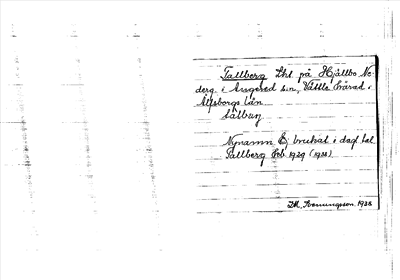 Tallberg Lht på Hjällbo No-
derg. i Angered s:n, Vättle härad i
Älfsborgs län.
tålbærj
Nynamn. Ej brukat i dagl. tal
Tallberg Jrb 1929 (1933)
Hemmingsson. 1938